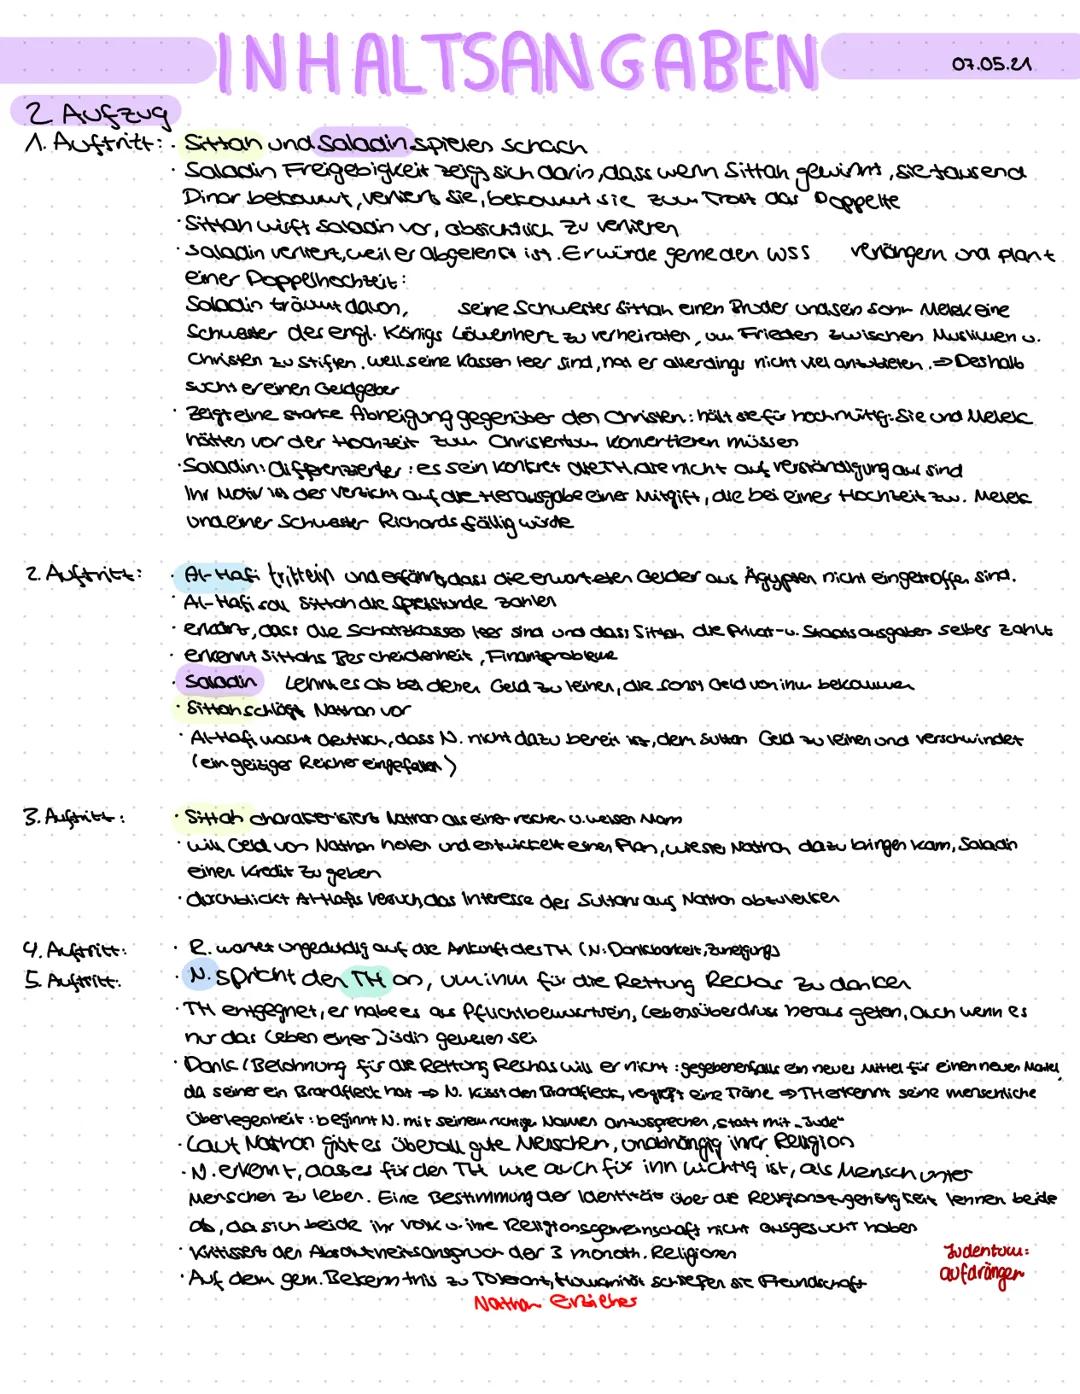 INHALTSANGABEN
07.05.21
2. Aufzug
1. Auftritt: · Sittah und Saladin spielen schach
· Saladin Freigebigkeit zeigt sich darin, dass wenn Sittah gewinnt, sie tausend
Dinar bekommt, verliert sie, bekommt sie zum Trost das Doppelte
· Sittah wirft Saladin vor, absichtlich zu verlieren
· Saladin verliert, weil er abgelenkt ist. Er würde gerne den WSS verlängern und plant
einer Doppelhochzeit:
Saladin träumt davon, seine Schwester Sittah einen Bruder und sein Sohn Melek eine
Schwester des engl. Königs Löwenherz zu verheiraten, um Frieden zwischen Muslimen u.
Christen zu stiften. Weil seine Kassen leer sind, hat er allerdings nicht viel anzubieten. ⇒ Deshalb
sucht er einen Geldgeber
· Zeigt eine starke Abneigung gegenüber den Christen: hält sie für hochmütig: Sie und Melek
hätten vor der Hochzeit zum Christentum konvertieren müssen
· Saladin: differenzierter: es sein konkret die TH, die nicht auf verständigung aus sind
Ihr Motiv ist der Verzicht auf die Herausgabe einer Mitgift, die bei einer Hochzeit zw. Melek
und einer Schwester Richards fällig würde
2. Auftritt: · Al-Hafi tritt ein und erfährt, dass die erwarteten Gelder aus Ägypten nicht eingetroffen sind.
· Al-Hafi soll Sittah die Spielstunde zahlen
· erklärt, dass die Schatzkassen leer sind und dass Sittah die Privat- u. Staatsausgaben selber zahlt
· erkennt Sittahs Bescheidenheit, Finanzprobleme
· Saladin lehnt es ab bei denen Geld zu leihen, die sonst Geld von ihm bekommen
· Sittah schlägt Nathan vor
· Al-Hafi macht deutlich, dass N. nicht dazu bereit ist, dem Sultan Geld zu leihen und verschwindet
(ein geiziger Reicher eingefallen)
3. Auftritt: · Sittah charakterisiert Nathan als einen reichen u. weisen Mann
· will Geld von Nathan holen und entwickelt einen Plan, wie sie Nathan dazu bringen kann, Saladin
einen Kredit zu geben
· durchblickt Al-Hafis Versuch, das Interesse der Sultans auf Nathan abzulenken
4. Auftritt: · R. wartet ungeduldig auf die Ankunft des TH (N: Dankbarkeit, Zuneigung)
5. Auftritt: · N. spricht den TH an, um ihm für die Rettung Rechas zu danken
· TH entgegnet, er habe es aus Pflichtbewusstsein, Lebensüberdruss heraus getan, auch wenn es
nur das Leben einer Jüdin gewesen sei
· Dank / Belohnung für die Rettung Rechas will er nicht: gegebenenfalls ein neues Mittel für einen neuen Mantel,
da seiner ein Brandfleck hat ⇒ N. küsst den Brandfleck, vergießt eine Träne ⇒ TH erkennt seine menschliche
Überlegenheit: beginnt N. mit seinem richtige Namen anzusprechen, statt mit „Jude"
· Laut Nathan gibt es überall gute Menschen, unabhängig ihrer Religion
· N. erkennt, dass es für den TH wie auch für ihn wichtig ist, als Mensch unter
Menschen zu leben. Eine Bestimmung der Identität über die Religionszugehörigkeit lehnen beide
ab, da sich beide ihr Volk u. ihre Religionsgemeinschaft nicht ausgesucht haben
· Kritisiert den Absolutheitsanspruch der 3 monoth. Religionen
· Auf dem gem. Bekenntnis zu Toleranz, Humanität schließen sie Freundschaft
Judentum:
aufdrängen
Nathan Erzieher